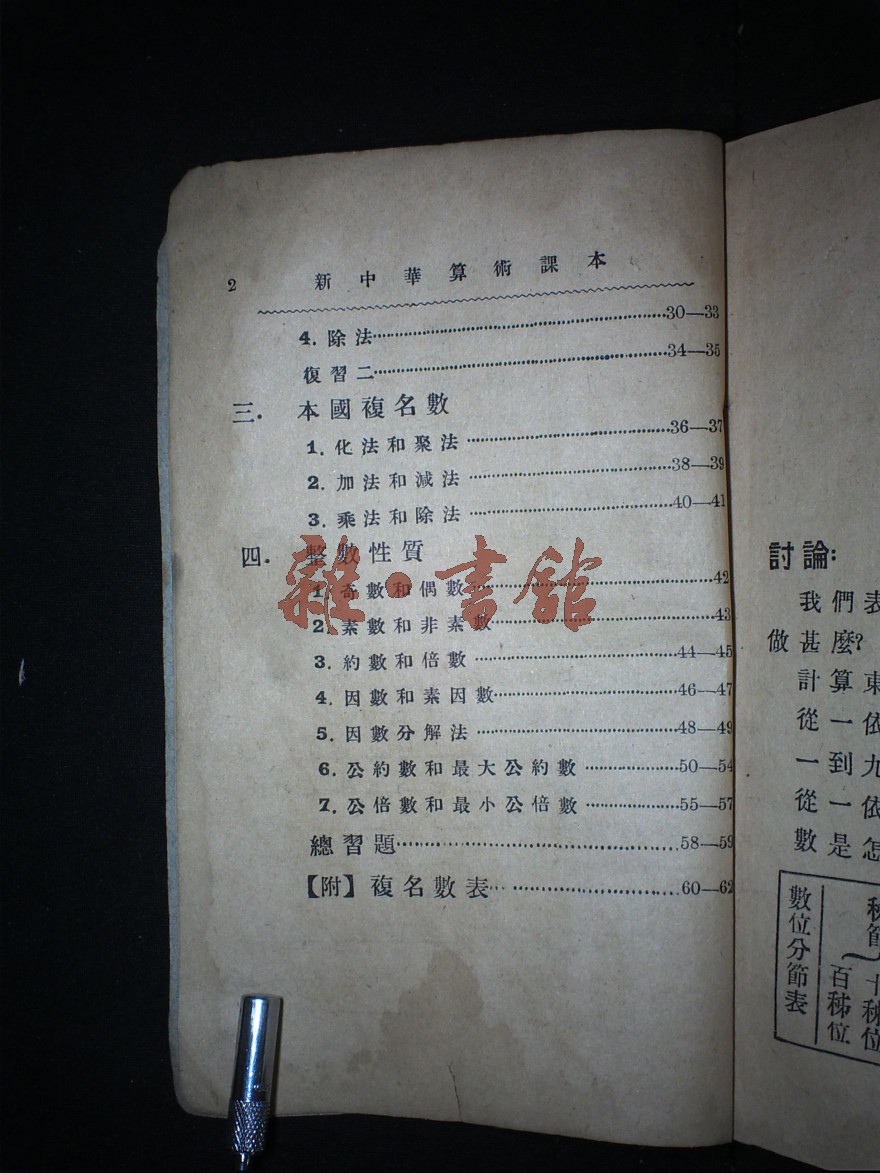 2 新中華算術課本
4. 除法 30—33
復習二 34—35
三. 本國複名數
1. 化法和聚法 36—37
2. 加法和減法 38—39
3. 乘法和除法 40—41
四. 整數性質
1. 奇數和偶數 42
2. 素數和非素數 43
3. 約數和倍數 44—45
4. 因數和素因數 46—47
5. 因數分解法 48—49
6. 公約數和最大公約數 50—54
7. 公倍數和最小公倍數 55—57
總習題 58—59
【附】複名數表 60—62
雜·書館
討論:
我們表
做甚麼?
計算東
從一依
一到九
從一依
數是怎
數位分節表
秭節
十秭位
百秭位